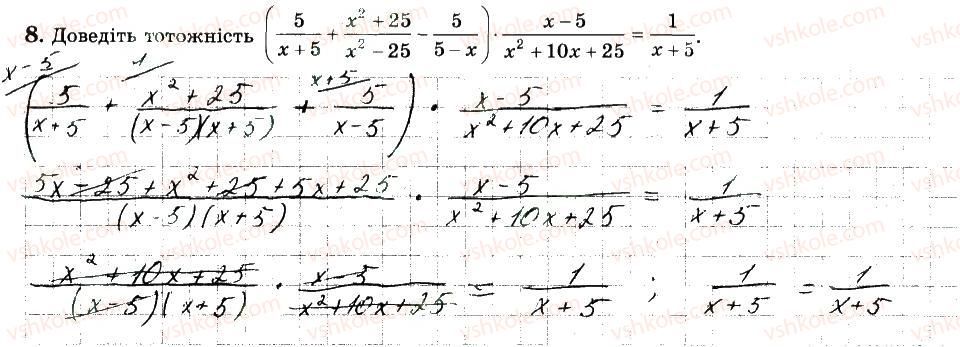 8. Доведіть тотожність (5/(x+5) + (x²+25)/(x²−25) − 5/(5−x)) · (x−5)/(x²+10x+25) = 1/(x+5).
x−5 1 x+5
(5/(x+5) + (x²+25)/((x−5)(x+5)) + 5/(x−5)) · (x−5)/(x²+10x+25) = 1/(x+5)
(5x−25+x²+25+5x+25)/((x−5)(x+5)) · (x−5)/(x²+10x+25) = 1/(x+5)
(x²+10x+25)/((x−5)(x+5)) · (x−5)/(x²+10x+25) = 1/(x+5) ; 1/(x+5) = 1/(x+5)
vshkole.com